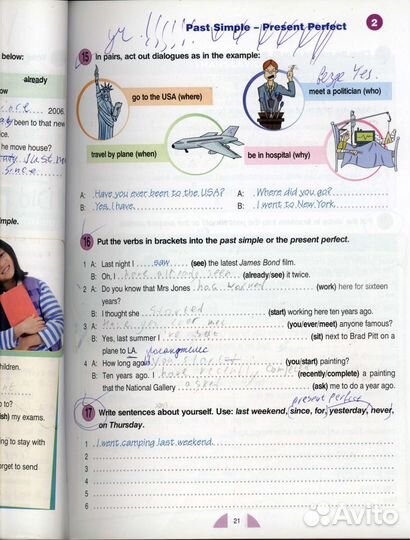 Past Simple – Present Perfect
2
below:
already
2006.
been to that new
he move house?
since
mple.
hildren.
to?
ish) my exams.
ing to stay with
orget to send
15 In pairs, act out dialogues as in the example:
go to the USA (where)
Везде Yes.
meet a politician (who)
travel by plane (when)
be in hospital (why)
A: Have you ever been to the USA?
B: Yes, I have.
A: Where did you go?
B: I went to New York.
16 Put the verbs in brackets into the past simple or the present perfect.
1 A: Last night I saw (see) the latest James Bond film.
B: Oh, I have already seen (already/see) it twice.
2 A: Do you know that Mrs Jones has worked (work) here for sixteen
years?
B: I thought she started (start) working here ten years ago.
3 A: Have you ever met (you/ever/meet) anyone famous?
B: Yes, last summer I (sit) next to Brad Pitt on a
plane to LA.
4 A: How long ago (you/start) painting?
B: Ten years ago. I have recently completed (recently/complete) a painting
that the National Gallery asked (ask) me to do a year ago.
present perfect
17 Write sentences about yourself. Use: last weekend, since, for, yesterday, never,
on Thursday.
1 I went camping last weekend.
2
3
4
5
6
21
Avito